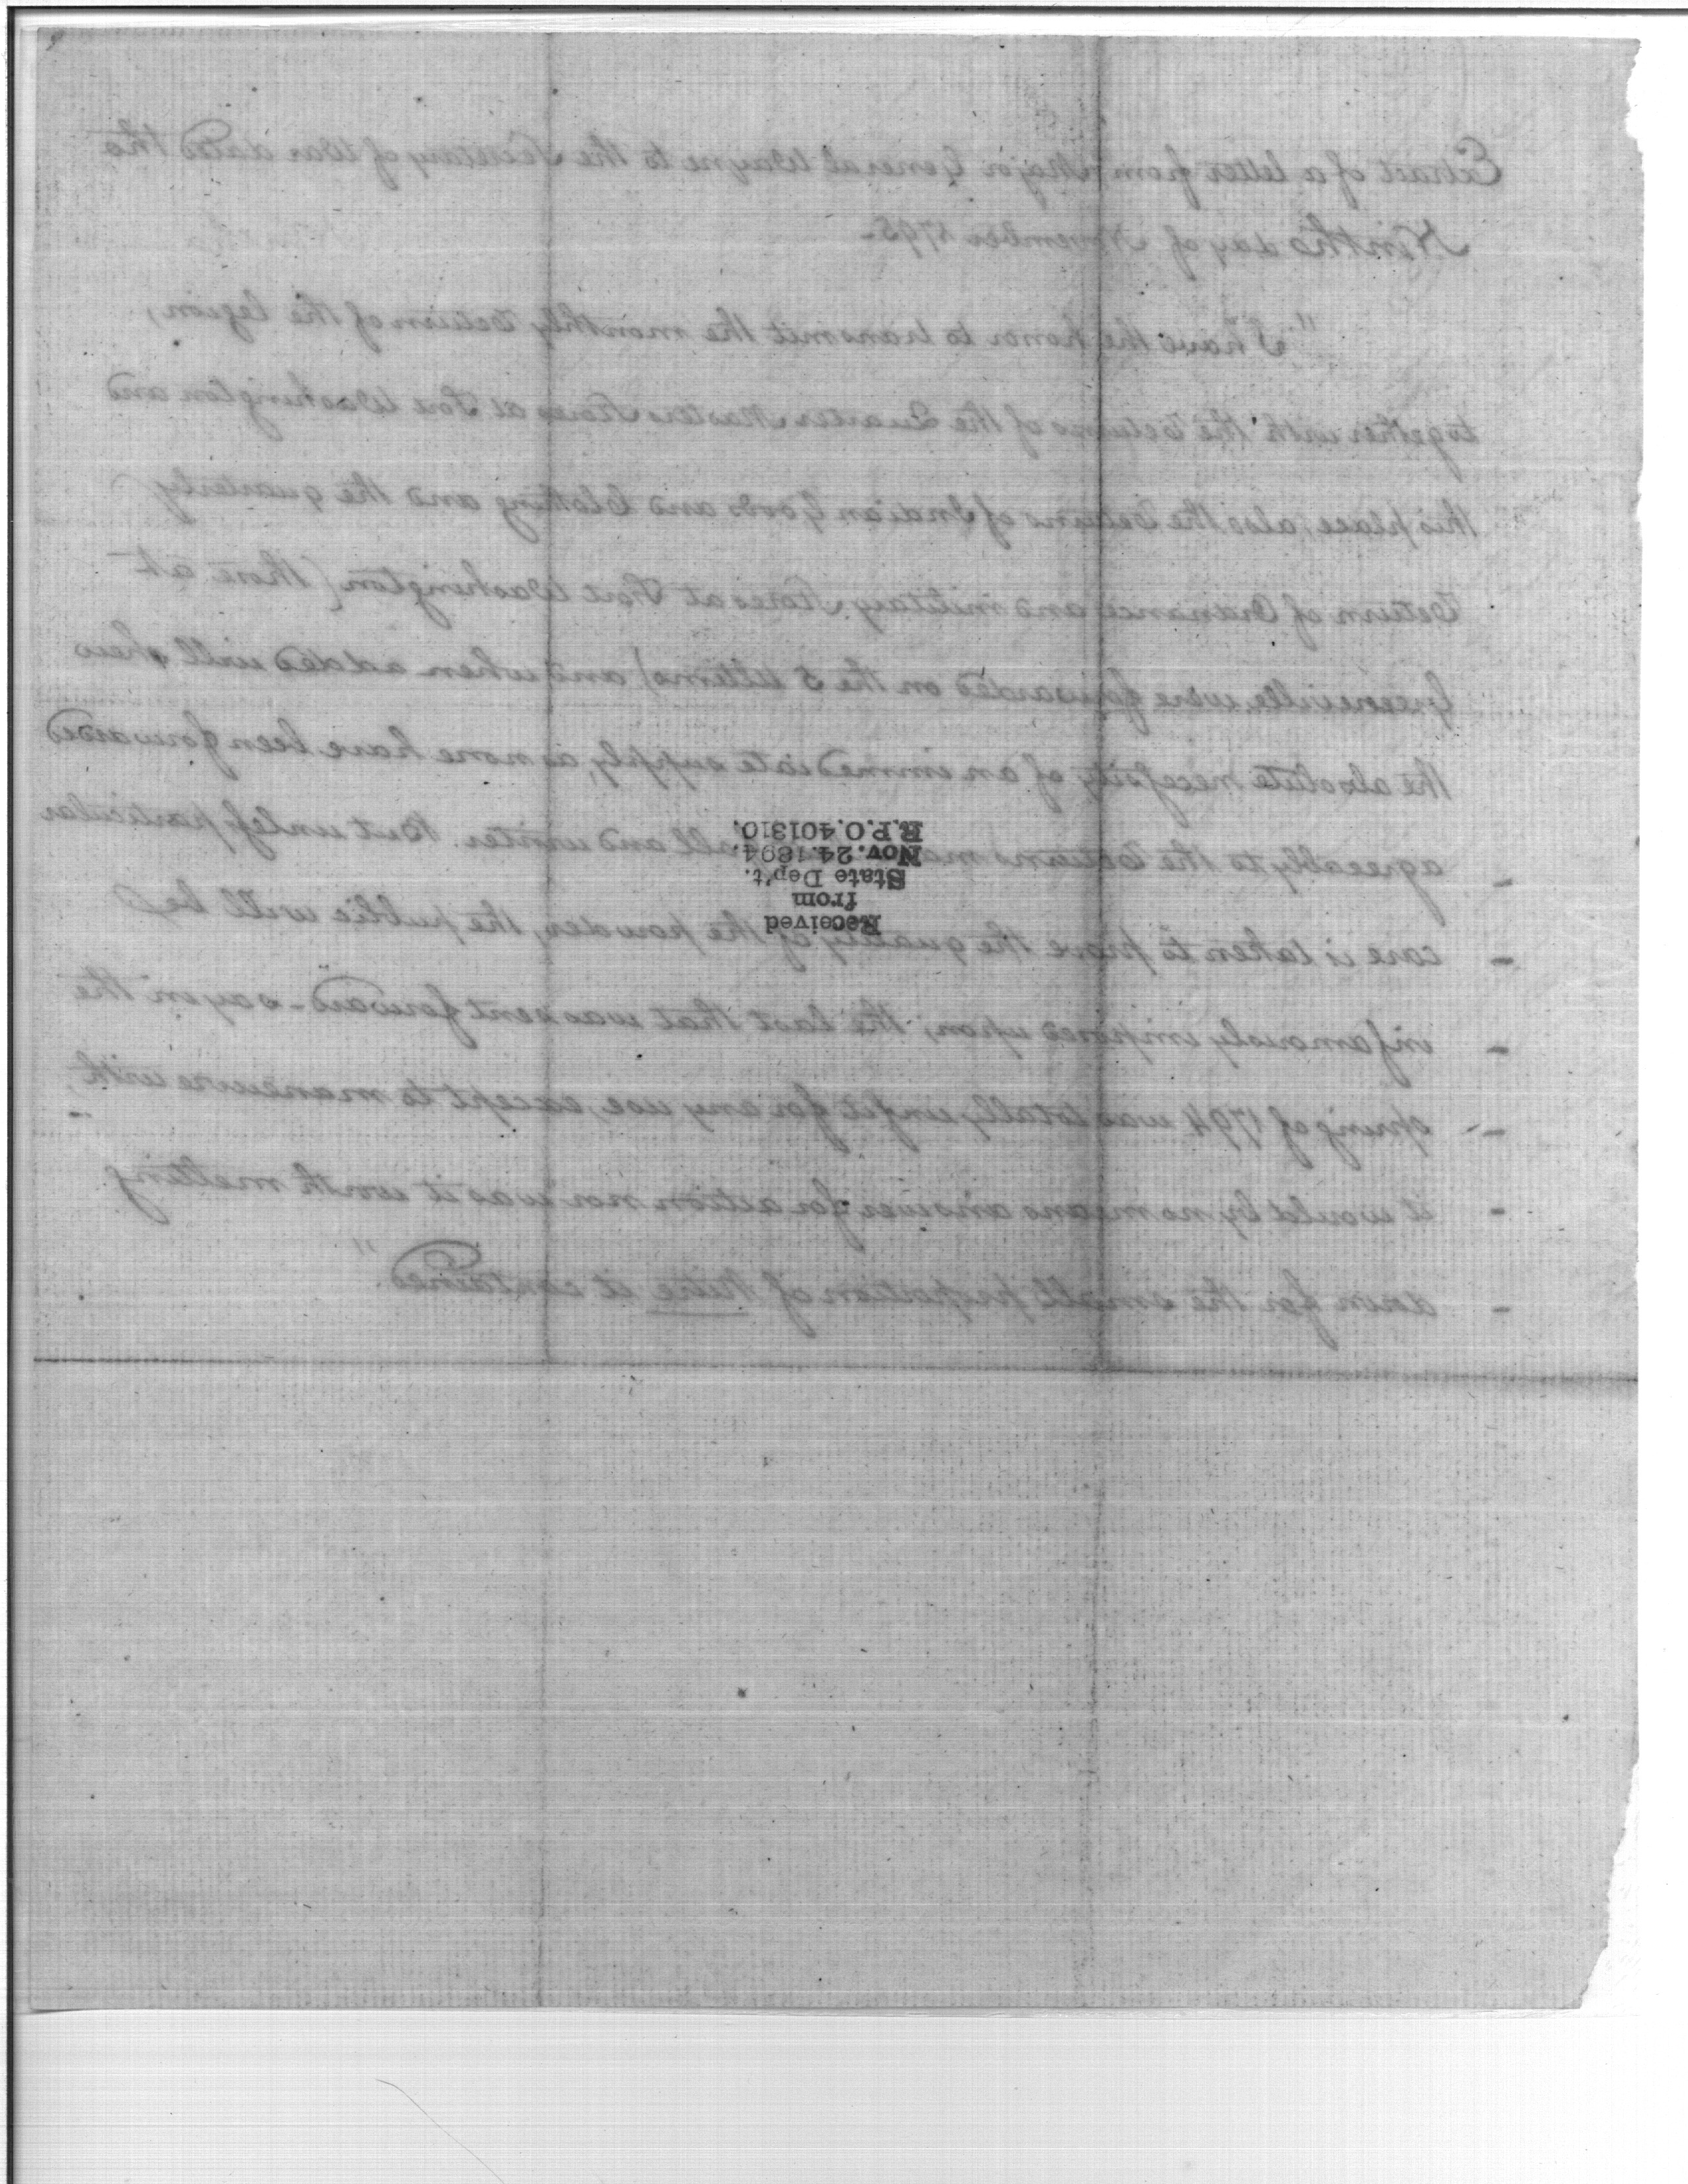 Extract of a letter from Major General Wayne to the Secretary of War dated the
Ninth day of November 1795-
"I have the honor to transmit the monthly return of the legion,
together with the returns of the Quarter Masters Stores at Fort Washington and
this place; also the returns of Indian Goods and Clothing and the quarterly
return of Ordnance and military Stores at Fort Washington (those at
Greeneville, were forwarded on the 5 ultimo) and when added will shew
the absolute necessity of an immediate supply, as none have been forwarded
- agreeably to the returns all and winter. But unless particular
- care is taken to prove the quality of the powder, the public will be
- infamously imposed upon; the last that was sent forward - say in the
- spring of 1794 was totally unfit for any use, except to manœuvre with,
- it would by no means answer for action nor was it worth melting
- down for the small proportion of Nitre it contained"
Received
from
State Dep't.
Nov. 24. 1894.
R.P.O. 401310.